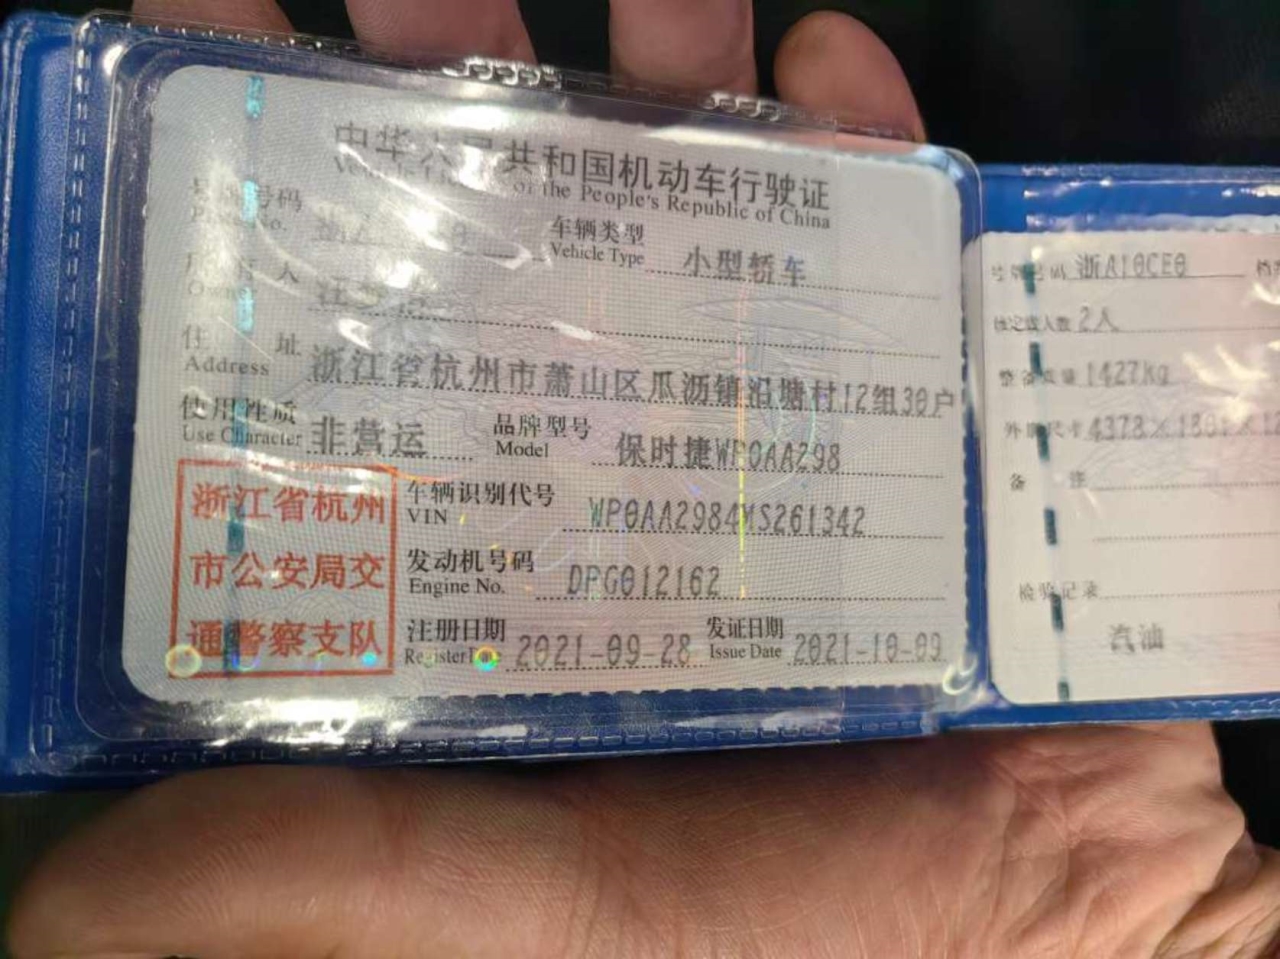 中华人民共和国机动车行驶证
Vehicle License of the People's Republic of China
号牌号码
Plate No.
车辆类型 小型轿车
Vehicle Type
所有人
Owner
住 址 浙江省杭州市萧山区瓜沥镇沿塘村12组30户
Address
使用性质 非营运 品牌型号 保时捷WP0AA298
Use Character Model
浙江省杭州
市公安局交
通警察支队
车辆识别代号 WP0AA2984MS261342
VIN
发动机号码 DPG012162
Engine No.
注册日期 2021-09-28 发证日期 2021-10-09
Register Date Issue Date
号牌号码 浙A10CE0
核定载人数 2人
整备质量 1427kg
外廓尺寸 4378×1801×12
备 注
检验记录
汽油